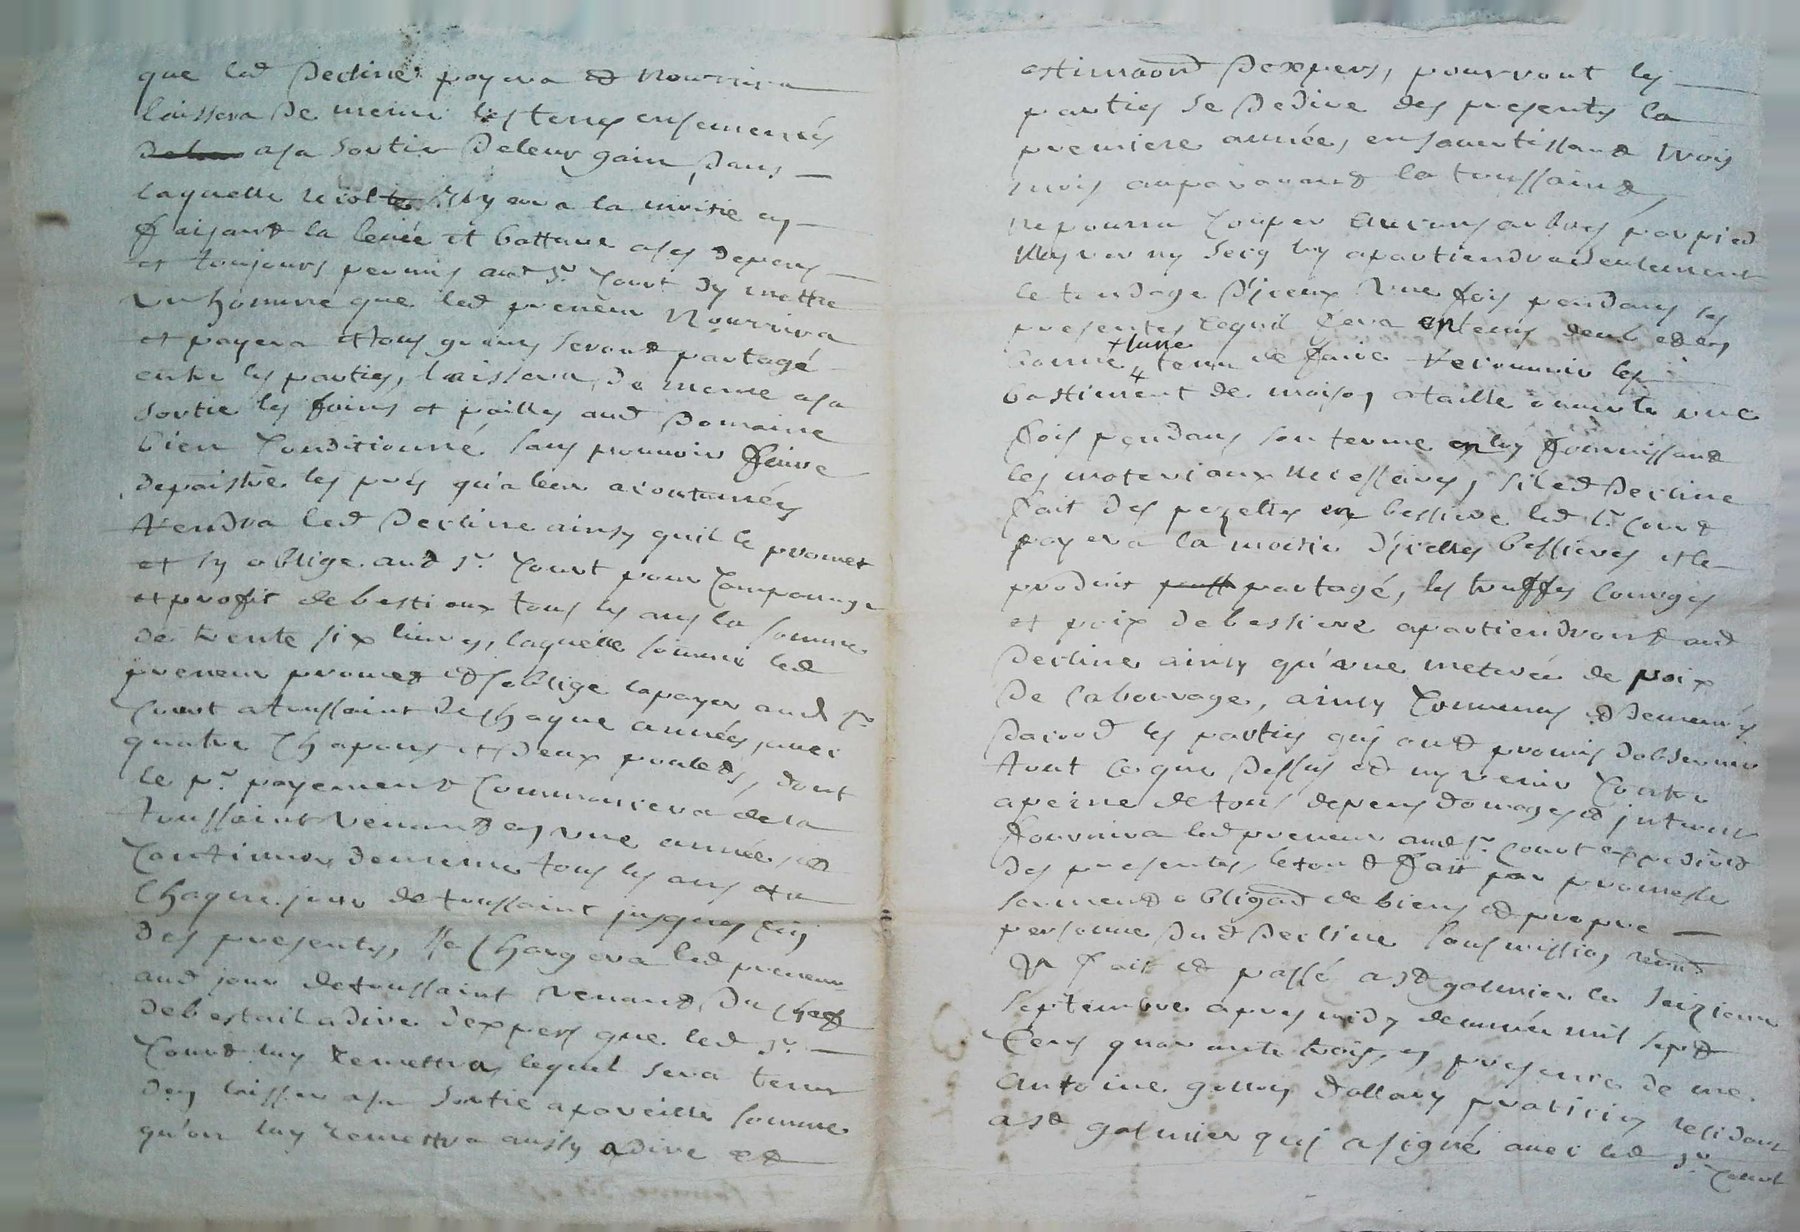 que led Decline payera et nourrira
laissera de meme les terres ensemencés
a sa sortie de leur gain, dans
laquelle recolte il y aura la moitié en
faisant la levée et batture a ses depens
et toujours permis aud sr Court dy mettre
un homme que led preneur nourrira
et payera et tous grains seront partagé
entre les parties, laissera de meme a sa
sortie les foins et pailles aud Domaine
bien conditionné sans pouvoir faire
depaistre les prés qu'a leur acoutumées
tendra led Decline ainsy quil le promet
et sy oblige aud sr Court pour
et profit de bestiaux tous les ans la somme
de trente six livres, laquelle somme led
preneur promet et soblige la payer aud sr
Court a toussaint de chaque année, avec
quatre chapons et deux poulets, dont
le pr payement commencera de la
toussaint venant en une année, et
continuer de meme tous les ans et a
chaque jour de toussaint jusques fin
des presentes, se chargera led preneur
aud jour de toussaint venant, du chaft
de bestail a dire dexpers que led sr
Court luy remettra lequel sera tenu
den laisser a sa sortie a pareille somme
qu'on luy remettra aussy a dire et
estimaôn dexpers, pourront les
parties se dedire des presentes la
premiere année, en saventissant trois
mois auparavant la toussaint,
ne pourra couper aucuns arbres par pied
ny verd ny secq luy apartiendra seulement
le tondage d'jceux une fois pendans les
presentes lequil fera en tems deub et en
bonne + lune tenu de faire recouvrir les
bastiment de maison et une
fois pendans son terme en luy fournissant
les materiaux necessaires, si led Decline
fait des pezelles en bessive led sr Court
payera la moitié d'jcelles bessieres et le
produit partagé, les truffes courges
et poix de bessiere apartiendront aud
Decline ainsy qu'une meterée de poix
de labourage, ainsy convenus et demeurés
dacord les parties qui ont promis dobserver
tout ce que dessus et ny venir contre
a peine de tous depens domages et jnterests
fournira led preneur aud sr Court expedition
des presentes, le tout fait par promesse
serment obligaôn de biens et propre
personne dud Decline soumission
fait et passé a St galmier le seizieme
septembre apres midy de année mil sept
cens quarante trois, en presence de me
Antoine praticien residant
a St galmier qui a signé avec led sr Court